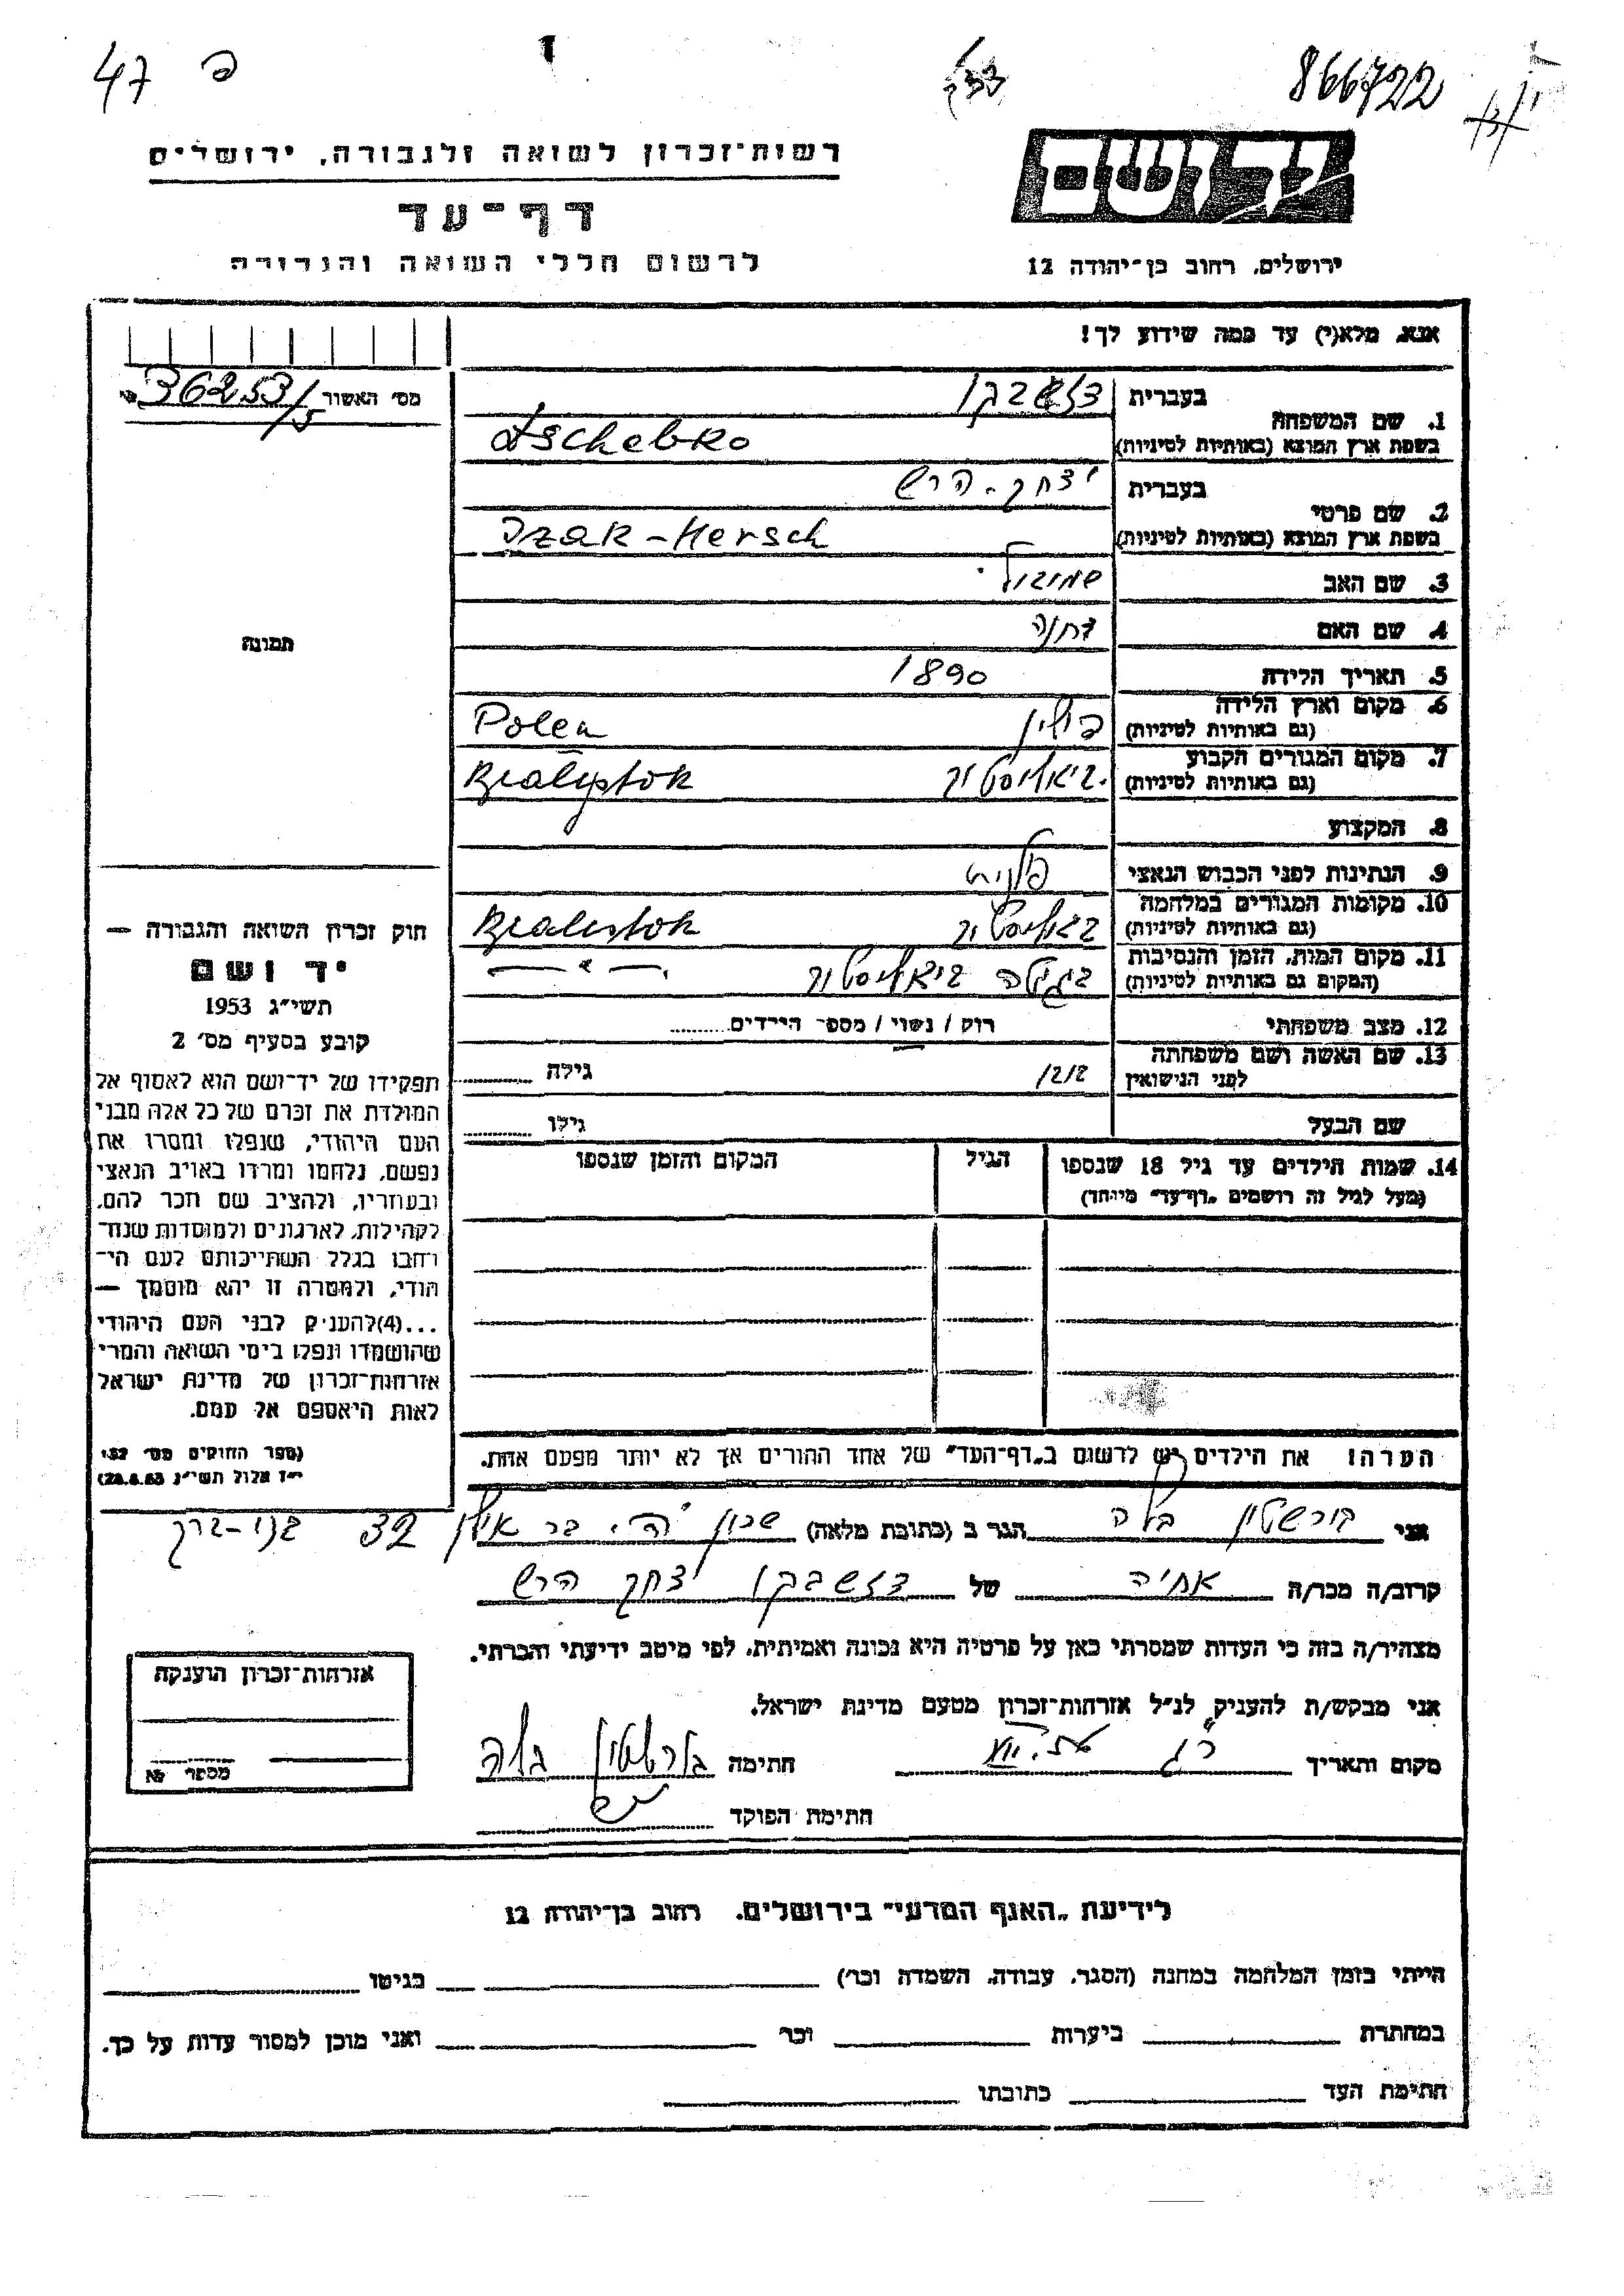 47 פ
866722
רשות־זכרון לשואה ולגבורה, ירושלים
יד ושם
דף־עד
לרשום חללי השואה והגבורה
ירושלים, רחוב בן־יהודה 12
אנא, מלא(י) עד כמה שידוע לך!
מס׳ האשור 36253/5
1. שם המשפחה בעברית דזשבקו
בשפת ארץ המוצא (באותיות לטיניות) Dschebko
2. שם פרטי בעברית יצחק-הרש
בשפת ארץ המוצא (באותיות לטיניות) Izak-Hersch
3. שם האב שמואל
4. שם האם
5. תאריך הלידה 1890
6. מקום וארץ הלידה פולין Polen
(גם באותיות לטיניות)
7. מקום המגורים הקבוע ביאליסטוק Bialystok
(גם באותיות לטיניות)
8. המקצוע
9. הנתינות לפני הכבוש הנאצי פולנית
10. מקומות המגורים במלחמה ביאליסטוק Bialystok
(גם באותיות לטיניות)
11. מקום המות, הזמן והנסיבות ביאליסטוק — " —
(המקום גם באותיות לטיניות)
12. מצב משפחתי רווק / נשוי / מספר הילדים
13. שם האשה ושם משפחתה גילה
לפני הנישואין
שם הבעל גילו
14. שמות הילדים עד גיל 18 שנספו הגיל המקום והזמן שנספו
(מעל לגיל זה רושמים „דף־עד” מיוחד)
הערה! את הילדים יש לרשום ב„דף־העד” של אחד ההורים אך לא יותר מפעם אחת.
תמונה
חוק זכרון השואה והגבורה —
יד ושם
תשי״ג 1953
קובע בסעיף מס׳ 2
תפקידו של יד־ושם הוא לאסוף אל
המולדת את זכרם של כל אלה מבני
העם היהודי, שנפלו ומסרו את
נפשם, נלחמו ומרדו באויב הנאצי
ובעוזריו, ולהציב שם וזכר להם,
לקהילות, לארגונים ולמוסדות שנח־
רבו בגלל השתייכותם לעם הי־
הודי, ולמטרה זו יהא מוסמך —
...(4)להעניק לבני העם היהודי
שהושמדו ונפלו בימי השואה והמרי
אזרחות־זכרון של מדינת ישראל
לאות היאספם אל עמם.
(ספר החוקים מס׳ 132
י״ז אלול תשי״ג 28.8.53)
אני בורשטין בלה הגר ב (כתובת מלאה) שכון ה׳ בר אילן 32 בני-ברק
קרוב/ה מכר/ה אחיה של דזשבקו יצחק הרש
מצהיר/ה בזה כי העדות שמסרתי כאן על פרטיה היא נכונה ואמיתית, לפי מיטב ידיעתי והכרתי.
אני מבקש/ת להעניק לנ״ל אזרחות־זכרון מטעם מדינת ישראל.
מקום ותאריך חתימה בורשטין בלה
חתימת הפוקד
אזרחות־זכרון הוענקה
מספר №
לידיעת „האגף המדעי” בירושלים, רחוב בן־יהודה 12
הייתי בזמן המלחמה במחנה (הסגר, עבודה, השמדה וכו׳) בגיטו
במחתרת ביערות וכו׳ ואני מוכן למסור עדות על כך.
חתימת העד כתובתו